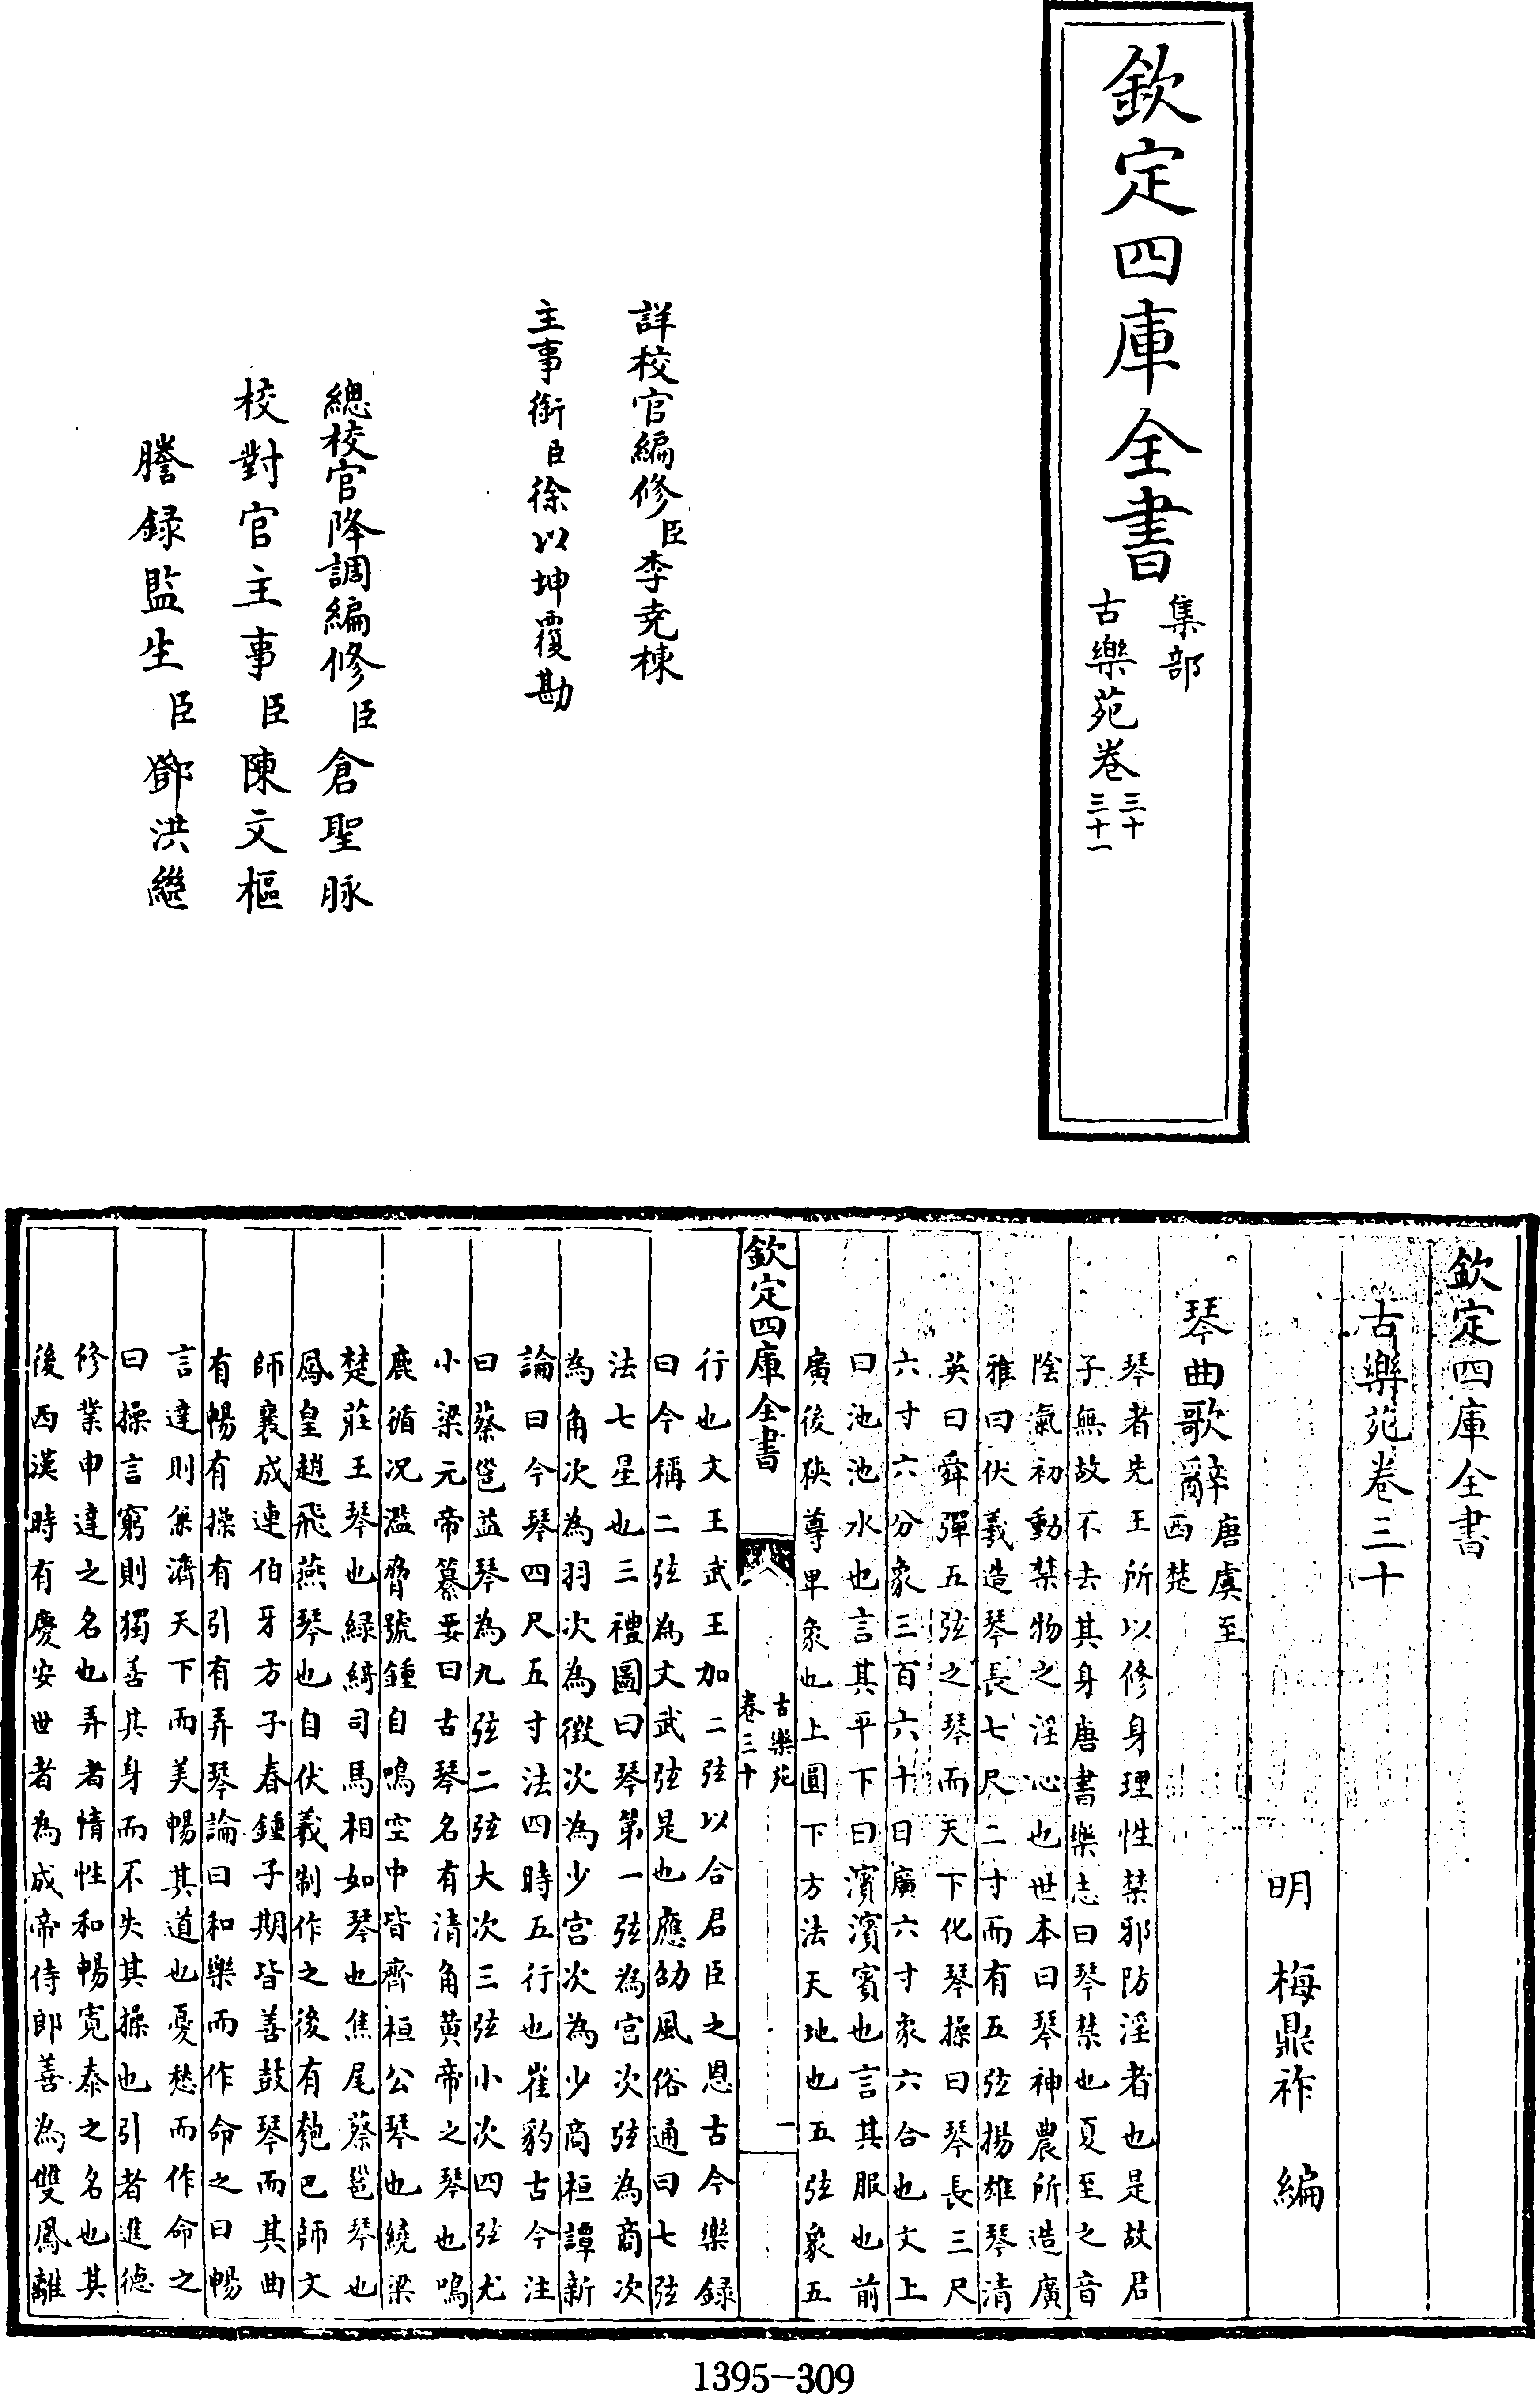 欽定四庫全書
集部
古樂苑卷三十
三十一
詳校官編修臣李堯棟
主事銜臣徐以坤覆勘
總校官降調編修臣倉聖脉
校對官主事臣陳文樞
謄録監生臣鄧洪繼
欽定四庫全書
古樂苑卷三十
明 梅鼎祚 編
琴曲歌辭唐虞至
西楚
琴者先王所以修身理性禁邪防淫者也是故君
子無故不去其身唐書樂志曰琴禁也夏至之音
陰氣初動禁物之淫心也世本曰琴神農所造廣
雅曰伏羲造琴長七尺二寸而有五弦揚雄琴清
英曰舜彈五弦之琴而天下化琴操曰琴長三尺
六寸六分象三百六十日廣六寸象六合也文上
曰池池水也言其平下曰濱濱賓也言其服也前
廣後狹尊卑象也上圓下方法天地也五弦象五
欽定四庫全書
古樂苑
卷三十
一
行也文王武王加二弦以合君臣之恩古今樂録
曰今稱二弦為文武弦是也應劭風俗通曰七弦
法七星也三禮圖曰琴第一弦為宫次弦為商次
為角次為羽次為徵次為少宫次為少商桓譚新
論曰今琴四尺五寸法四時五行也崔豹古今注
曰蔡邕益琴為九弦二弦大次三弦小次四弦尤
小梁元帝纂要曰古琴名有清角黄帝之琴也鳴
鹿循况濫脅號鍾自鳴空中皆齊桓公琴也繞梁
楚莊王琴也緑綺司馬相如琴也焦尾蔡邕琴也
鳳皇趙飛燕琴也自伏羲制作之後有匏巴師文
師襄成連伯牙方子春鍾子期皆善鼓琴而其曲
有暢有操有引有弄琴論曰和樂而作命之曰暢
言達則兼濟天下而美暢其道也憂愁而作命之
曰操言窮則獨善其身而不失其操也引者進德
修業申達之名也弄者情性和暢寛泰之名也其
後西漢時有慶安世者為成帝侍郎善為雙鳳離
1395-309